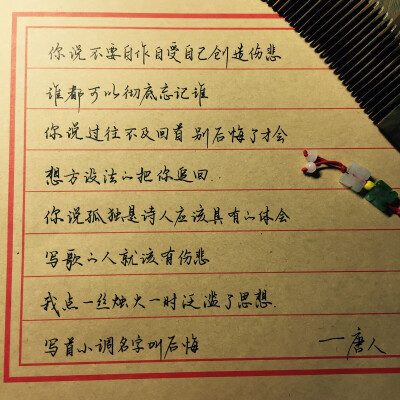 你说不要自作自受自己创造伤悲
谁都可以彻底忘记谁
你说过往不及回首 别后悔了才会
想方设法的把你追回.
你说孤独是诗人应该具有的体会
写歌的人就该有伤悲
我点一丝烛火一时泛滥了思想.
写首小调名字叫后悔
一唐人